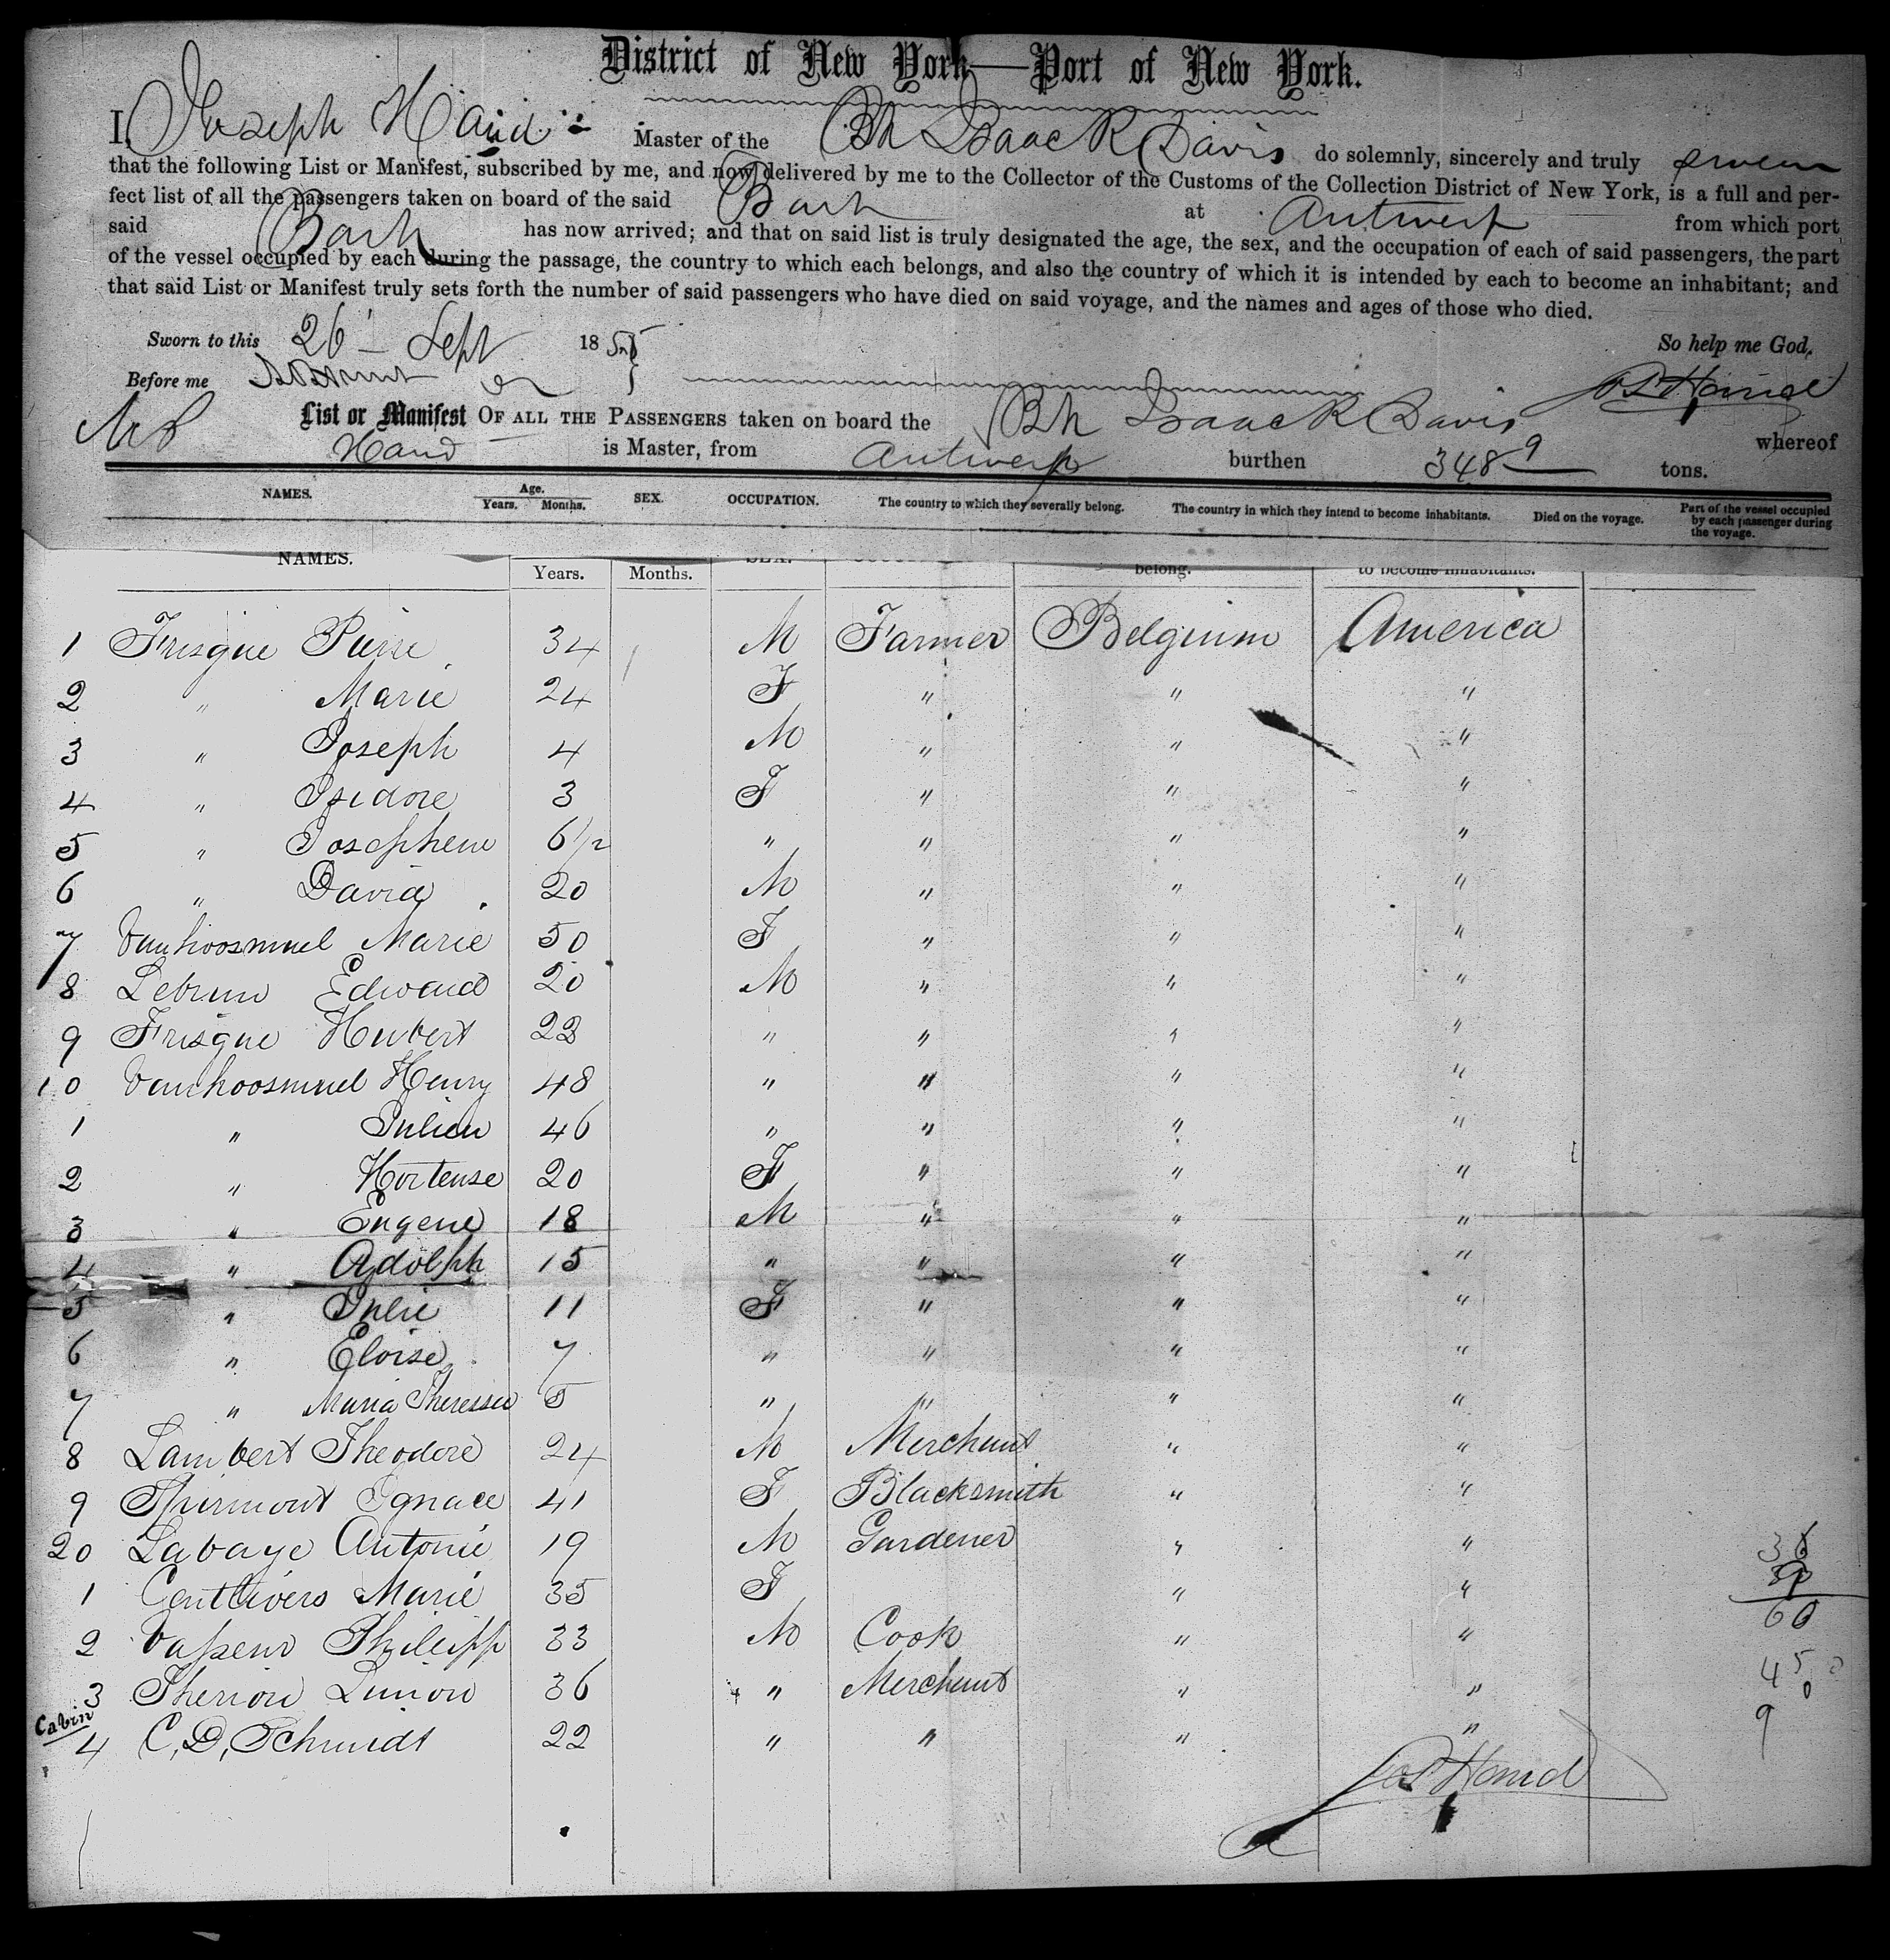 District of New York—Port of New York.
I, Joseph Hand Master of the Bk Isaac R Davis do solemnly, sincerely and truly swear
that the following List or Manifest, subscribed by me, and now delivered by me to the Collector of the Customs of the Collection District of New York, is a full and per-
fect list of all the passengers taken on board of the said Bark at Antwerp from which port
said Bark has now arrived; and that on said list is truly designated the age, the sex, and the occupation of each of said passengers, the part
of the vessel occupied by each during the passage, the country to which each belongs, and also the country of which it is intended by each to become an inhabitant; and
that said List or Manifest truly sets forth the number of said passengers who have died on said voyage, and the names and ages of those who died.
Sworn to this 26 Sept 1855 So help me God.
Before me Jos Hand
List or Manifest OF ALL THE PASSENGERS taken on board the Bk Isaac R Davis whereof
Hand is Master, from Antwerp burthen 348 9 tons.
NAMES. Age. Years. Months. SEX. OCCUPATION. The country to which they severally belong. The country in which they intend to become inhabitants. Died on the voyage. Part of the vessel occupied by each passenger during the voyage.
NAMES. Years. Months. belong. to become inhabitants.
1 Frisque Pierre 34 M Farmer Belgium America
2 " Marie 24 F " " "
3 " Joseph 4 M " " "
4 " Isidore 3 F " " "
5 " Josephene 6 1/2 " " " "
6 " David 20 M " " "
7 Vanhoosmuel Marie 50 F " " "
8 Lebrun Edward 20 M " " "
9 Frisque Hubert 22 " " " "
10 Vanhoosmuel Henry 48 " " " "
1 " Julien 46 " " " "
2 " Hortense 20 F " " "
3 " Eugene 18 M " " "
4 " Adolph 15 " " " "
5 " Julie 11 F " " "
6 " Eloise 7 " " " "
7 " Maria Theressa 5 " " " "
8 Lambert Theodore 24 M Merchant " "
9 Ignace 41 F Blacksmith " "
20 Labaye Antonie 19 M Gardener " "
1 Centlivers Marie 35 F " "
2 Vasseur Philipp 33 M Cook " "
3 Therion 36 " Merchant " "
Cabin
4 C. D. Schmidt 22 " " " "
60
45
0
9
Jos Hand